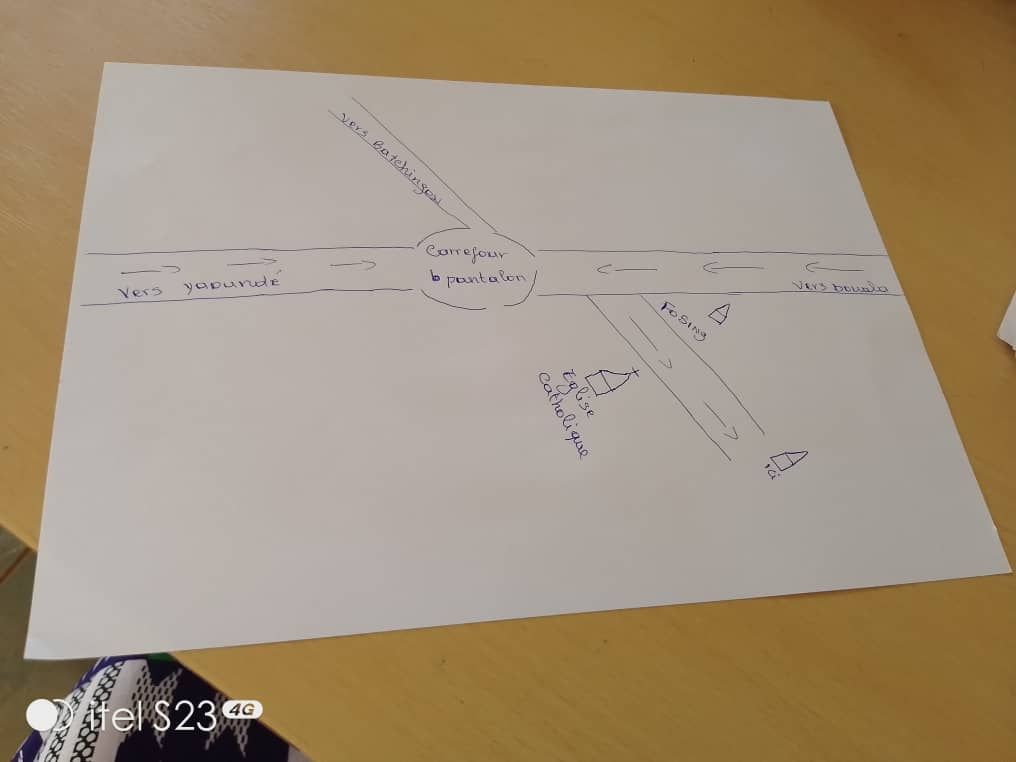 Vers Batchingou
Carrefour
b pantalon
Vers yaoundé
Vers Douala
FOSING
Eglise
Catholique
ici
itel S23 4G